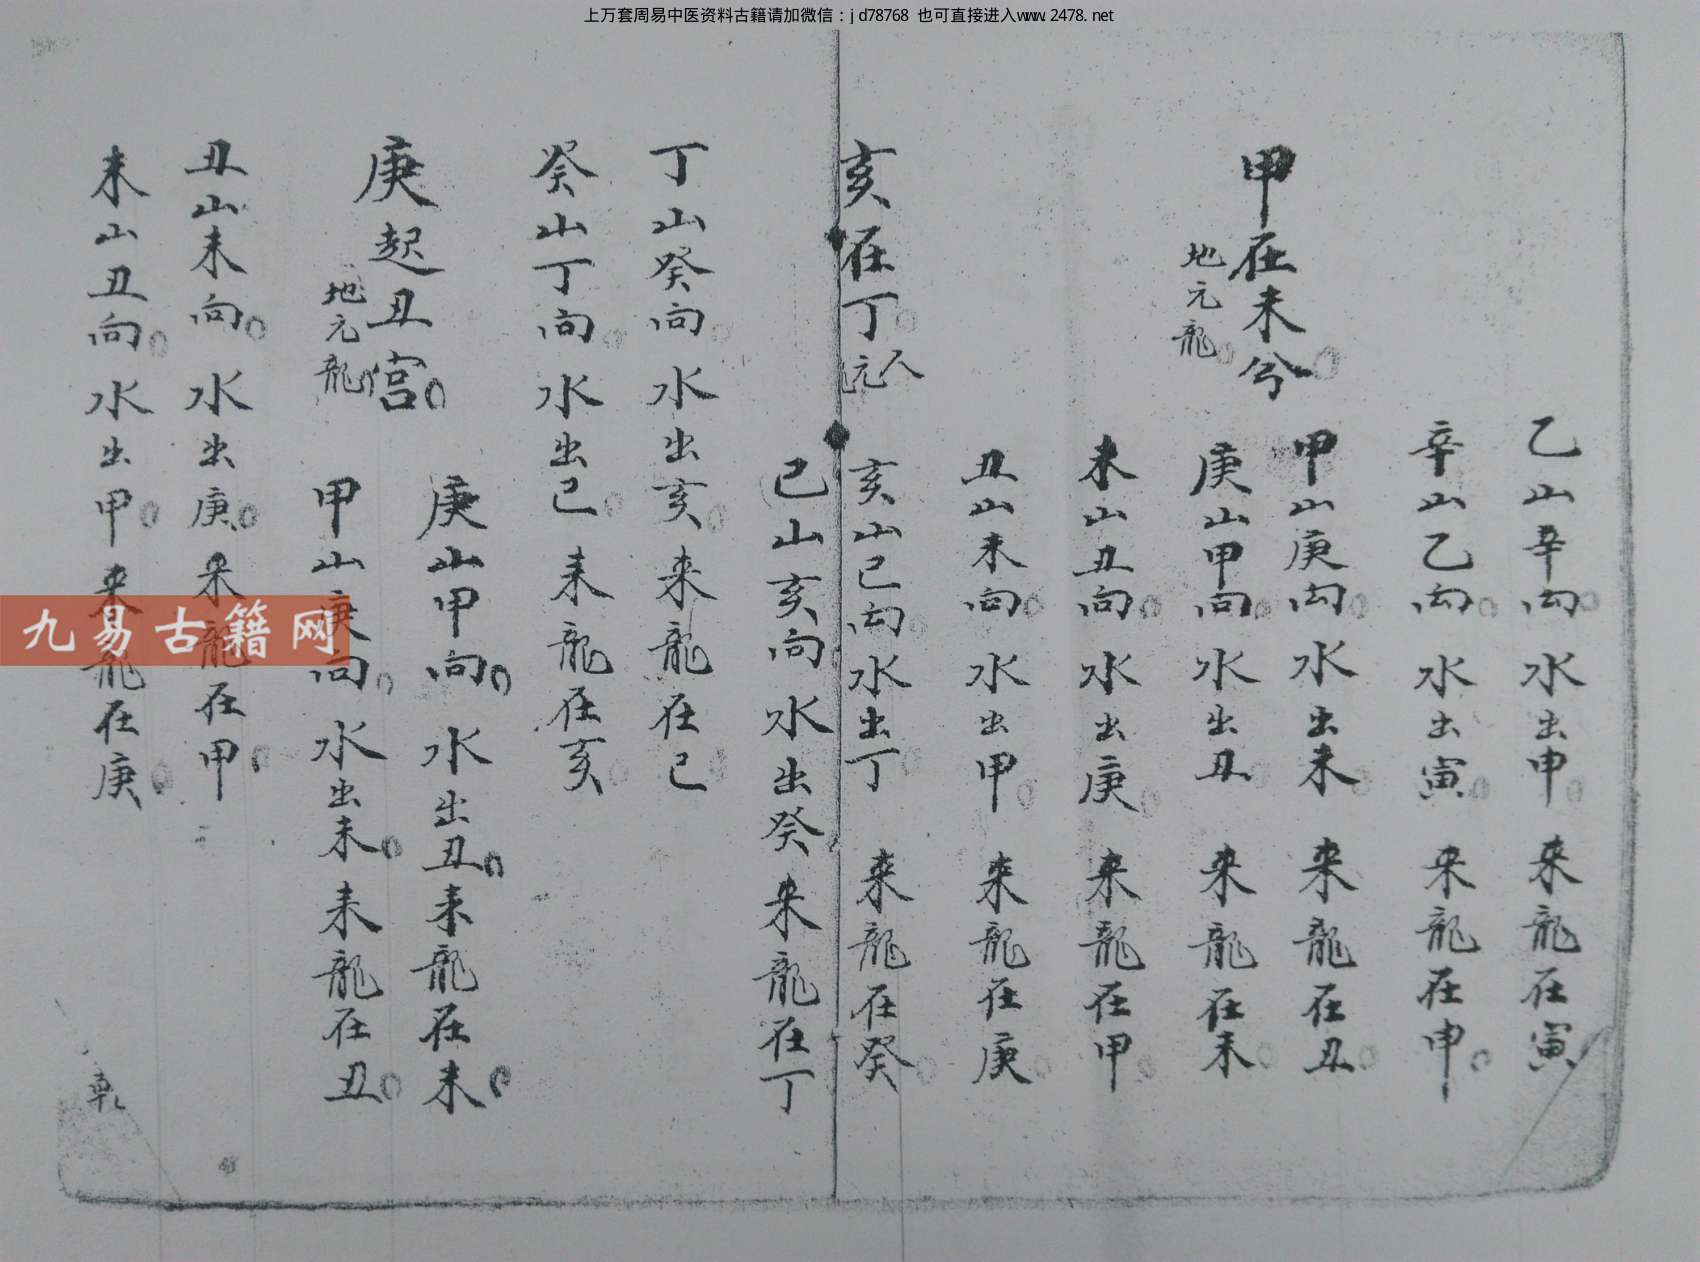 上万套周易中医资料古籍请加微信：jd78768 也可直接进入www.2478.net
乙山辛向 水出申 来龍在寅
辛山乙向 水出寅 来龍在申
甲在未兮
地元龍
甲山庚向 水出未 来龍在丑
庚山甲向 水出丑 来龍在未
未山丑向 水出庚 来龍在甲
丑山未向 水出甲 来龍在庚
亥在丁
人元
亥山巳向 水出丁 来龍在癸
巳山亥向 水出癸 来龍在丁
丁山癸向 水出亥 来龍在巳
癸山丁向 水出巳 来龍在亥
庚起丑宫
地元龍
庚山甲向 水出丑 来龍在未
甲山庚向 水出未 来龍在丑
丑山未向 水出庚 来龍在甲
未山丑向 水出甲 来龍在庚
乾
九易古籍网